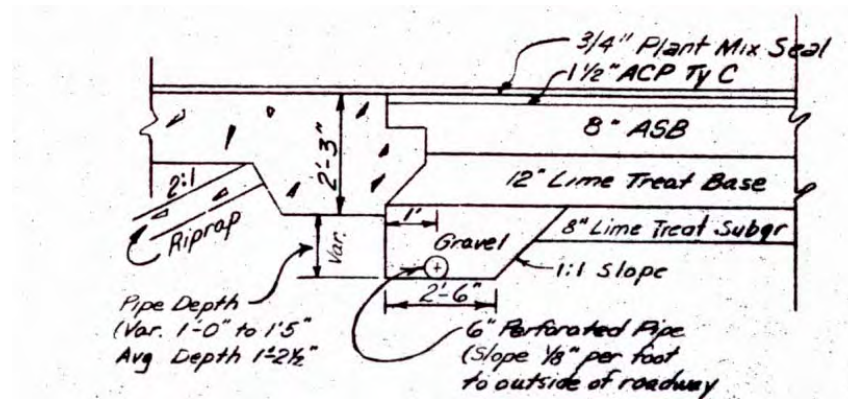 3/4" Plant Mix Seal
1 1/2" ACP Ty C
8" ASB
2'-3"
12" Lime Treat Base
2:1
Riprap
1'
Gravel
8" Lime Treat Subgr
Var.
1:1 Slope
2'-6"
Pipe Depth
(Var. 1'-0" to 1'5"
Avg Depth 1'-2 1/2"
6" Perforated Pipe
(Slope 1/8" per foot
to outside of roadway